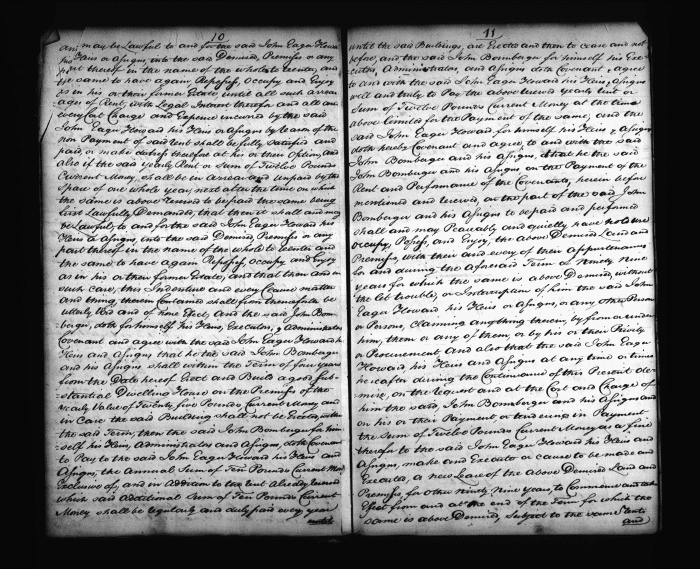 10
am may be Lawful to and for the said John Eager Howard
his Heirs or Assigns, into the said Demised Premises or any
part thereof in the name of the whole to enter, and
the same to have again Repossess, Occupy, and Enjoy
as in his or their former Estate until all such arrear
ages of Rent, with Legal Interest therefor and all and
every Cost Charge and Expence incurred by the said
John Eager Howard his Heirs or Assigns by reason of the
non Payment of said Rent shall be fully Satisfied and
paid, or made
also if the said yearly Rent or Sum of Twelve Pounds
Current Money, shall be in arrear and Unpaid by the
space of one whole year next after the time on which
the same is above reserved to be paid the same being
first Lawfully Demanded, that then it shall and may
be Lawful, to and for the said John Eager Howard his
Heirs or Assigns, into the said Demised Premises or any
part thereof in the name of the whole to enter and
the same to have again Repossess, occupy, and Enjoy
as in his or their former Estate, and that then and in
such case, this Indenture and every Clause matter
and thing, therein Contained shall from thenceforth be
utterly Void and of none Effect, And the said John Bom
berger, doth for himself his Heirs, Executors, & Administrators
Covenant and agree with the said John Eager Howard his
Heirs and Assigns that he the said John Bomberger
and his Assigns shall within the Term of four years
from the Date hereof Erect and Build a good Sub-
stantial Dwelling House on the Premises of the
yearly Value of Twenty five Pounds Current Money and
in Case the said Building shall not be Erected, within
the said Term, then the said John Bomberger for him
self his Heirs, Administrators and Assigns, doth Covenant
to Pay to the said John Eager Howard his Heirs and
Assigns, the Annual Sum of Ten Pounds Current Money
Exclusive of, and in addition to the rent already reserved
which said additional Sum of Ten Pounds Current
Money shall be regularly and duly paid every year
until
11
until the said Buildings, are Erected and then to cease and not
before, and the said John Bomberger for himself his Exe-
cutors, Administrators, and Assigns doth Covenant & Agree
to and with the said John Eager Howard his Heirs, Assigns
will and truly to Pay the above reserved yearly rent or
Sum of Twelve Pounds Current Money at the time
above limited for the Payment of the same, and the
said John Eager Howard for himself his Heirs & Assigns
doth hereby Covenant and agree to and with the said
John Bomberger and his Assigns, that he the said
John Bomberger and his Assigns, on the Payment of the
Rent and Performance of the Covenants, herein before
mentioned and reserved, on the part of the said John
Bomberger and his Assigns to be paid and performed
shall and may Peaceably and quietly have hold use
occupy Possess, and Enjoy, the above Demised Land and
Premises, with their and every of their Appurtenances
for and during the aforesaid Term of Ninety Nine
years for which the same is above Demised, without
the let trouble, or Interruption of him the said John
Eager Howard his Heirs or Assigns, or any other Person
or Persons, Claiming anything therein, by from or under
him, them or any of them, or by his or their Privity
or Procurement And also that the said John Eager
Howard, his Heirs and Assigns at any time or times
hereafter during the Continuance of this Present de-
mise, on the request and at the Cost and Charge of
him the said John Bomberger and his Assigns and
on his or their Payment or tendering in Payment
the Sum of Twelve Pounds Current Money as a fine
therefor to the said John Eager Howard his Heirs and
Assigns, make and Execute or cause to be made and
Executed, a new Lease of the above Demised Land and
Premises, for other ninety Nine years, to Commence and take
Effect from and at the end of the Term for which the
same is above Demised, Subject to the same Rents
and